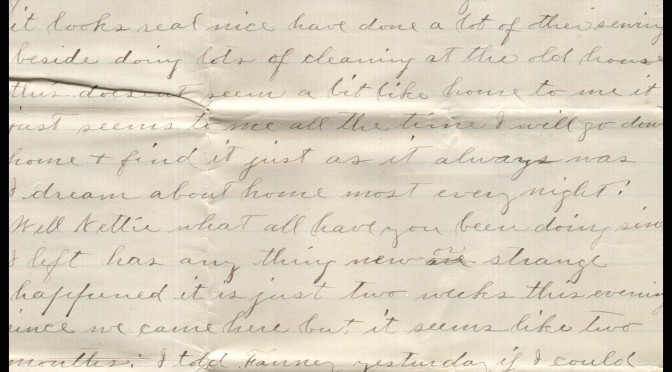 it looks real nice have done a lot of other sewing
beside doing lots of cleaning at the old house
this does not seem a bit like home to me it
just seems to me all the time I will go down
home + find it just as it always was
I dream about home most every night.
Well Nettie what all have you been doing sin
I left has any thing new or strange
happened it is just two weeks this evening
since we came here but it seems like two
months. I told Fanney yesturday if I could